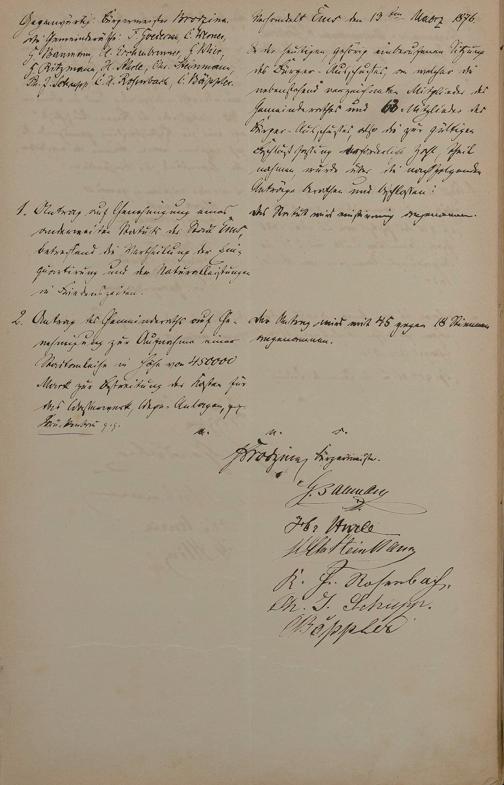 Gegenwärtig: Bürgermeister Brodzina.
die Gemeinderäthe: F. Goedecke, C. Werner,
G. Baumann,
G. Ritzmann, H. Havele, Chr. Steinmann,
Ph. J. Schupp, C. F. Rosenbach, C. Bäppler.
Verhandelt Ems den 13ten März 1876
In der heutigen gehörig einberufenen Sitzung
des Bürger-Ausschusses, in welcher die
nebenstehend verzeichneten Mitglieder des
Gemeinderathes und 63 Mitglieder des
Bürger-Ausschusses also die zur gültigen
Beschlußfassung erforderliche Zahl, Theil
nahmen wurde über die nachfolgenden
Anträge berathen und beschlossen:
1. Antrag auf Genehmigung eines
anderweiten Statuts der Stadt Ems,
betreffend die Vertheilung der Ein-
quartierung und der Naturalleistungen
in Friedenszeiten.
das Statut wird einstimmig angenommen.
2. Antrag des Gemeinderaths auf Ge-
nehmigung zur Aufnahme einer
Stadtanleihe in Höhe von 450000
Mark zur Bestreitung der Kosten für
das Wasserwerk, Anlagen,
Der Antrag wird mit 45 gegen 18 Stimmen
angenommen.
v. u.
Brodzina, Bürgermeister.
G. Baumann
Steinmann
K. F. Rosenbach.
Ph. J. Schupp.
C Bäppler